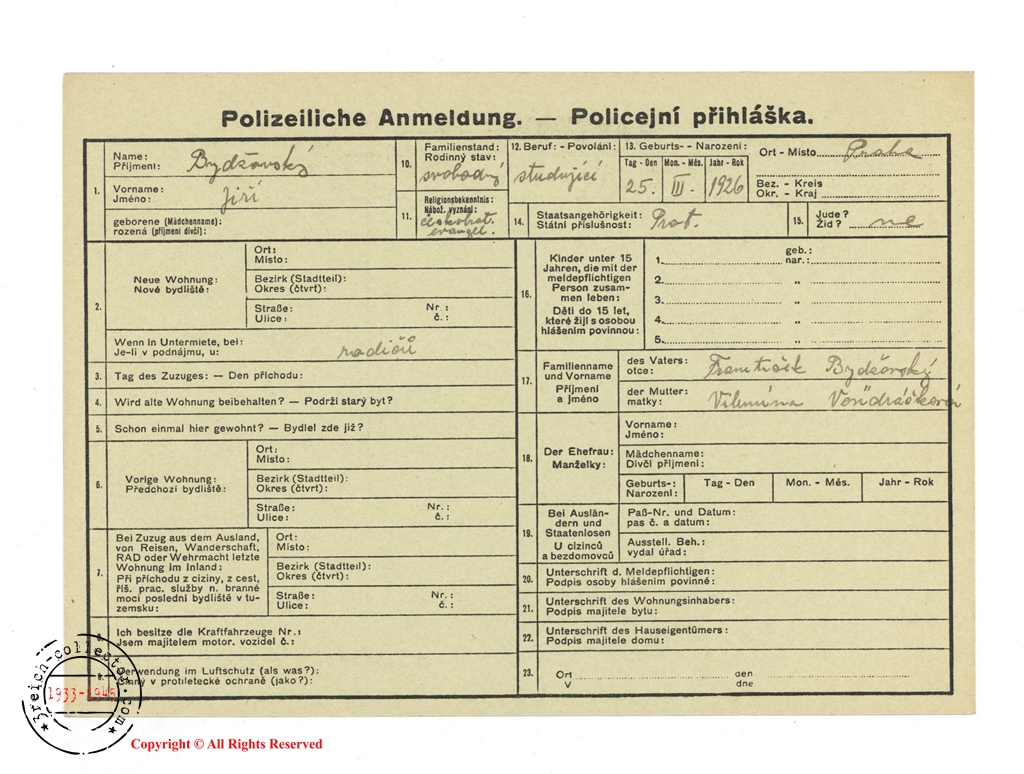 Polizeiliche Anmeldung. — Policejní přihláška.
1.
Name:
Příjmení: Bydžovský
Vorname:
Jméno: Jiří
geborene (Mädchenname):
rozená (příjmení dívčí):
10.
Familienstand:
Rodinný stav:
svobodný
11.
Religionsbekenntnis:
Nábož. vyznání:
českobrat.
evangel.
12. Beruf: - Povolání:
studující
13. Geburts- - Narození:
Tag - Den Mon. - Měs. Jahr - Rok
25. III. 1926
Ort - Místo Praha
Bez. - Kreis
Okr. - Kraj
14.
Staatsangehörigkeit:
Státní příslušnost: Prot.
15.
Jude?
Žid? ne
2.
Neue Wohnung:
Nové bydliště:
Ort:
Místo:
Bezirk (Stadtteil):
Okres (čtvrt):
Straße: Nr.:
Ulice: č.:
Wenn in Untermiete, bei:
Je-li v podnájmu, u: rodičů
3. Tag des Zuzuges: — Den příchodu:
4. Wird alte Wohnung beibehalten? — Podrží starý byt?
5. Schon einmal hier gewohnt? — Bydlel zde již?
6.
Vorige Wohnung:
Předchozí bydliště:
Ort:
Místo:
Bezirk (Stadtteil):
Okres (čtvrt):
Straße: Nr.:
Ulice: č.:
7.
Bei Zuzug aus dem Ausland,
von Reisen, Wanderschaft,
RAD oder Wehrmacht letzte
Wohnung im Inland:
Při příchodu z ciziny, z cest,
říš. prac. služby n. branné
moci poslední bydliště v tu-
zemsku:
Ort:
Místo:
Bezirk (Stadtteil):
Okres (čtvrt):
Straße: Nr.:
Ulice: č.:
Ich besitze die Kraftfahrzeuge Nr.:
Jsem majitelem motor. vozidel č.:
Verwendung im Luftschutz (als was?):
v protiletecké ochraně (jako?):
16.
Kinder unter 15
Jahren, die mit der
meldepflichtigen
Person zusam-
men leben:
Děti do 15 let,
které žijí s osobou
hlášením povinnou:
geb.:
1. nar.:
2. „
3. „
4. „
5. „
17.
Familienname
und Vorname
Příjmení
a jméno
des Vaters:
otce: František Bydžovský
der Mutter:
matky: Vilemína Vondráčková
18.
Der Ehefrau:
Manželky:
Vorname:
Jméno:
Mädchenname:
Dívčí příjmení:
Geburts-:
Narození: Tag - Den Mon. - Měs. Jahr - Rok
19.
Bei Auslän-
dern und
Staatenlosen
U cizinců
a bezdomovců
Paß-Nr. und Datum:
pas č. a datum:
Ausstell. Beh.:
vydal úřad:
20.
Unterschrift d. Meldepflichtigen:
Podpis osoby hlášením povinné:
21.
Unterschrift des Wohnungsinhabers:
Podpis majitele bytu:
22.
Unterschrift des Hauseigentümers:
Podpis majitele domu:
23.
Ort den
V dne
3reich-collector.com
1933-1945
Copyright © All Rights Reserved